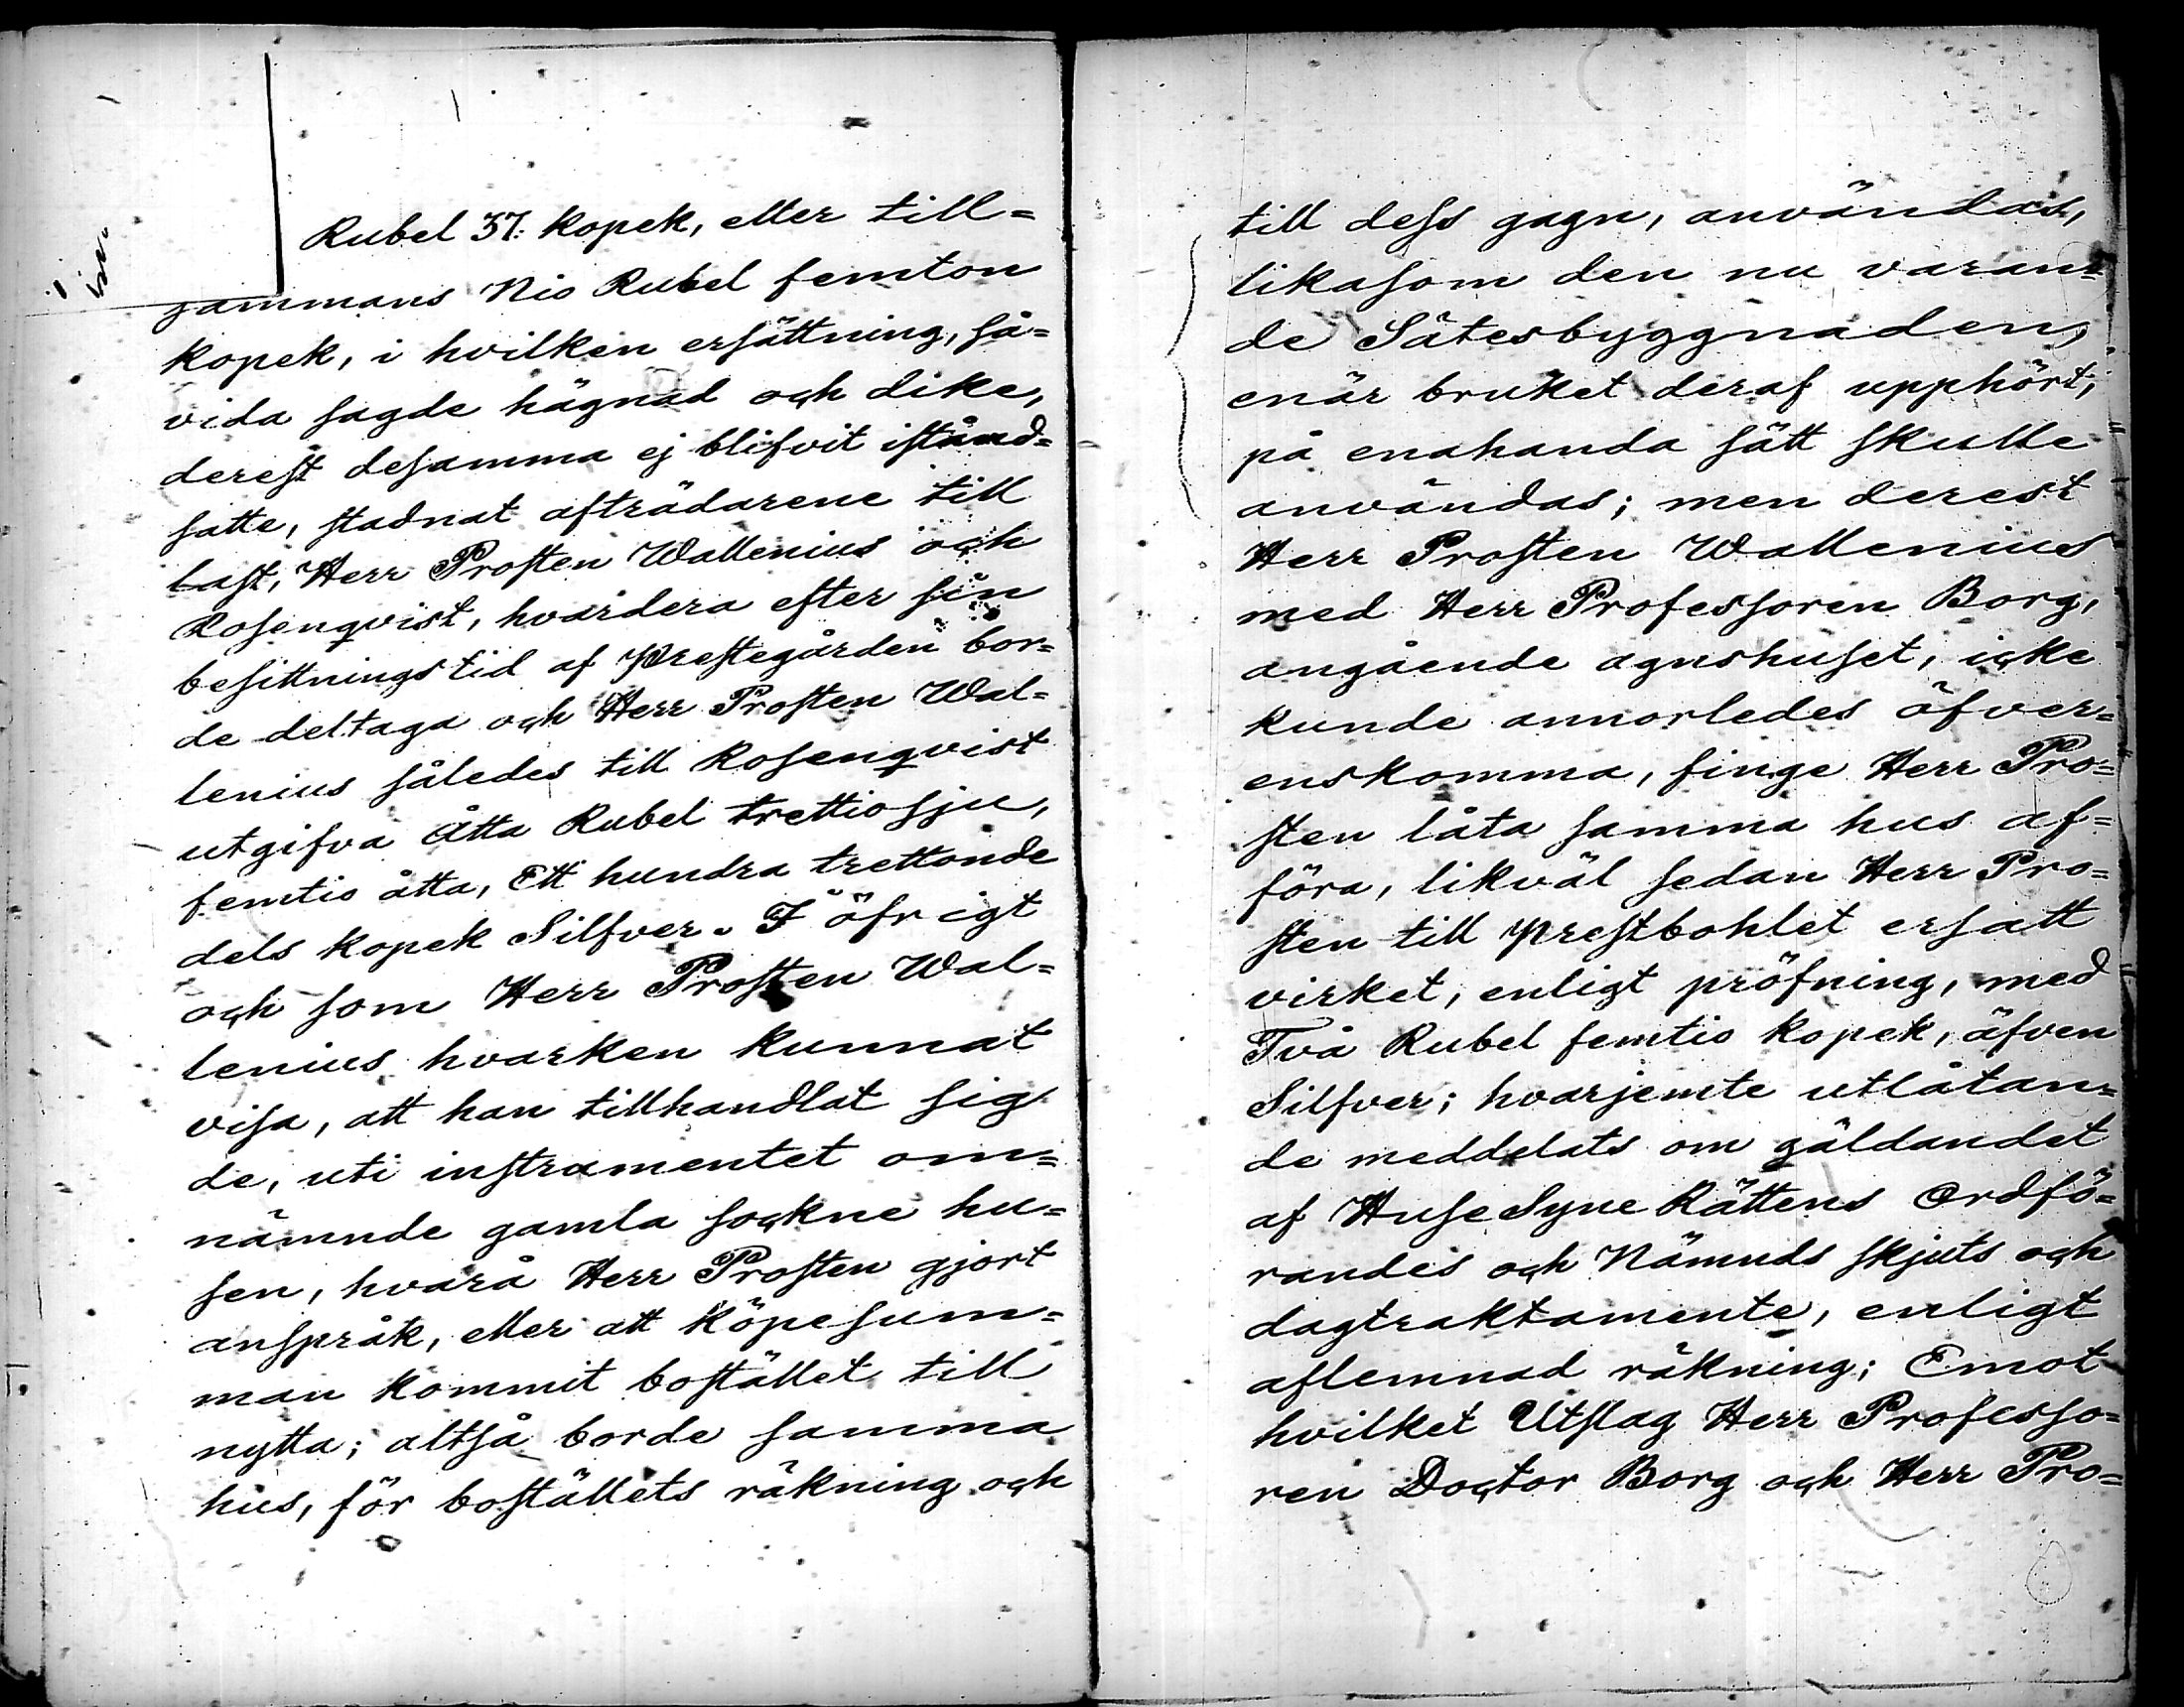 Rubel 37. kopek, eller till=
sammans Nio Rubel femton
kopek, i hvilken ersättning, så=
vida sagde hägnad och dike,
derest desamma ej blifvit istånd=
satte, stadnat afträdarene till
last, Herr Prosten Wallenius och
Rosenqvist, hvardera efter sin
besittningstid af Prestegården bor=
de deltaga och Herr Prosten Wal=
lenius således till Rosenqvist
utgifva Åtta Rubel trettiosju,
femtio åtta, Ett hundra trettonde
dels kopek Silfver. I öfrigt
och som Herr Prosten Wal=
lenius hvarken kunnat
visa, att han tillhandlat sig
de, uti instramentet om=
nämnde gamla sockne hu=
sen, hvarå Herr Prosten gjort
anspråk, eller att köpesum=
man kommit bostället till
nytta; altså borde samma
hus, för boställets räkning och
till dess gagn, användas,
likasom den nu varan=
de Sätesbyggnaden,
enär bruket deraf upphört,
på enahanda sätt skulle
användas; men derest
Herr Prosten Wallenius
med Herr Professoren Borg,
angående agnshuset, icke
kunde annorledes öfver=
enskomma, finge Herr Pro=
sten låta samma hus af=
föra, likväl sedan Herr Pro=
sten till prestbohlet ersatt
virket, enligt pröfning, med
Två Rubel femtio kopek, äfven
Silfver; hvarjemte utlåtan=
de meddelats om gäldandet
af HuseSyne Rättens Ordfö=
randes och Nämnds skjuts och
dagtraktamente, enligt
aflemnad räkning; Emot
hvilket Utslag Herr Professo=
ren Doctor Borg och Herr Pro=